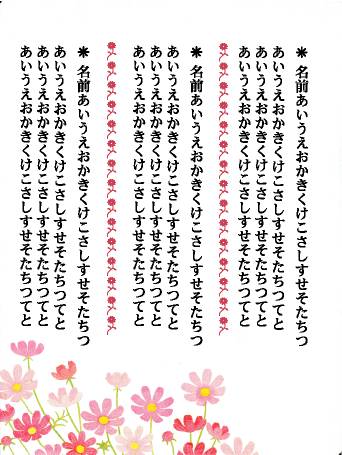 ＊ 名前あいうえおかきくけこさしすせそたちつ
あいうえおかきくけこさしすせそたちつてと
あいうえおかきくけこさしすせそたちつてと
あいうえおかきくけこさしすせそたちつてと
＊ 名前あいうえおかきくけこさしすせそたちつ
あいうえおかきくけこさしすせそたちつてと
あいうえおかきくけこさしすせそたちつてと
あいうえおかきくけこさしすせそたちつてと
＊ 名前あいうえおかきくけこさしすせそたちつ
あいうえおかきくけこさしすせそたちつてと
あいうえおかきくけこさしすせそたちつてと
あいうえおかきくけこさしすせそたちつてと